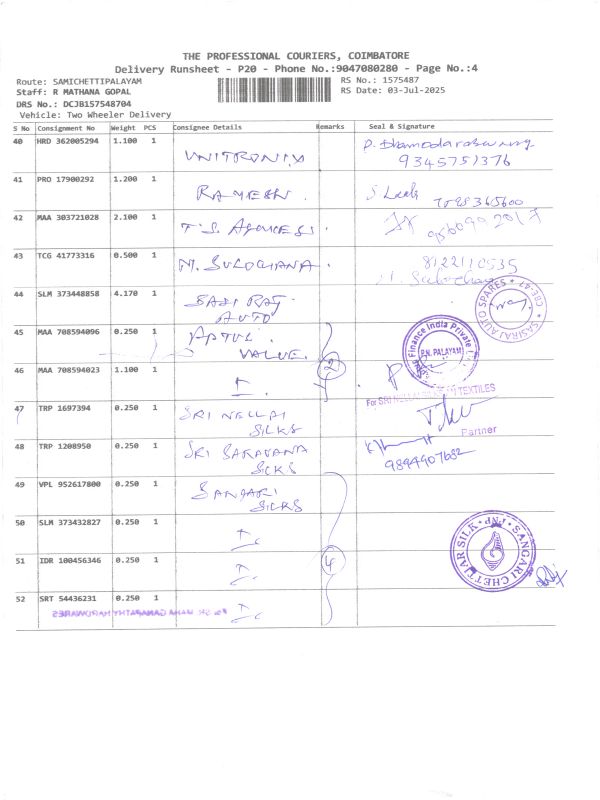 THE PROFESSIONAL COURIERS, COIMBATORE
Delivery Runsheet - P20 - Phone No.:9047080280 - Page No.:4
Route: SAMICHETTIPALAYAM
RS No.: 1575487
Staff: R MATHANA GOPAL
RS Date: 03-Jul-2025
DRS No.: DCJB157548704
Vehicle: Two Wheeler Delivery
S No Consignment No Weight PCS Consignee Details Remarks Seal & Signature
40 HRD 362005294 1.100 1 UNITRONIX P. Dhamodaraswamy
9345751376
41 PRO 17900292 1.200 1 RAMESH
42 MAA 303721028 2.100 1 T.S.
43 TCG 41773316 0.500 1 M. SULOCHANA. 8122110535
M. Sulochana
44 SLM 373448858 4.170 1 SASI RAJ
AUTO
SASIRAJ AUTO SPARES * CBE-47 *
45 MAA 708594096 0.250 1 APTUS
VALUE.
Finance India Private
P.N. PALAYAM
46 MAA 708594023 1.100 1 2
For SRI NELLAI TEXTILES
47 TRP 1697394 0.250 1 SRI NELLAI
SILKS
Partner
48 TRP 1208950 0.250 1 SRI SARAVANA
SILKS
9894907682
49 VPL 952617800 0.250 1 SANGARI
SILKS
50 SLM 373432827 0.250 1
SANGARI CHETTIAR SILK
51 IDR 100456346 0.250 1 4
52 SRT 54436231 0.250 1
MAHA GANAPATHY HARDWARES